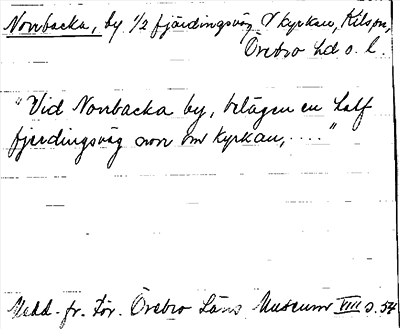 Norrbacka, by 1/2 fjärdingsväg V kyrkan, Kilsbn,
Örebro hd o. l.
"Vid Norrbacka by, belägen en half
fjerdingsväg norr om kyrkan, ...."
Medd. fr. För. Örebro Läns Museum VIII s. 54